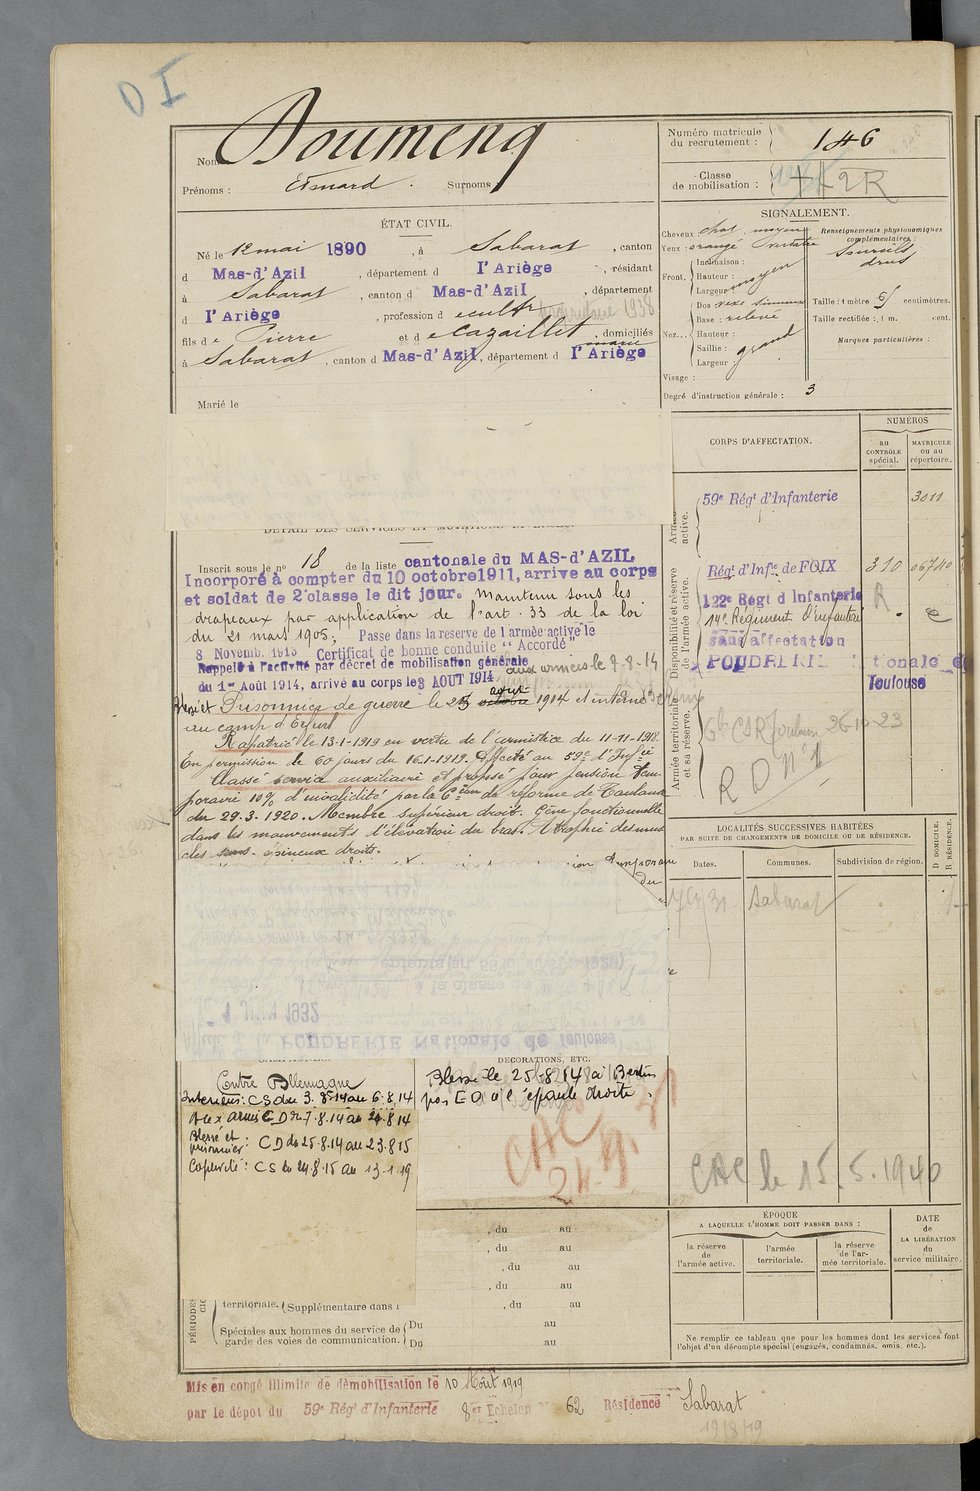 DI
Nom : Doumenq
Prénoms : Edouard . Surnoms :
Numéro matricule du recrutement : 146
Classe de mobilisation : 2R
ÉTAT CIVIL.
Né le 12 mai 1890 , à Sabarat , canton
d Mas-d'Azil , département d l'Ariège , résidant
à Sabarat , canton d Mas-d'Azil , département
d l'Ariège , profession d e cultr 1938
fils d e Pierre et d e Cazaillet marie , domiciliés
à Sabarat , canton d Mas-d'Azil , département d l'Ariège
Marié le
SIGNALEMENT.
Cheveux chat. moyen
Yeux orangé verdatre
Front. Inclinaison :
Hauteur : moyen
Largeur :
Nez... Dos vexe sinueux
Base : relevé
Hauteur :
Saillie : grand
Largeur :
Visage :
Renseignements physionomiques complémentaires :
Sourcils
drus
Taille : 1 mètre 61 centimètres.
Taille rectifiée : 1 m. cent.
Marques particulières :
Degré d'instruction générale : 3
CORPS D'AFFECTATION.
NUMÉROS
au CONTRÔLE spécial.
MATRICULE ou au répertoire.
Armée active.
59e Régt d'Infanterie 3011
Disponibilité et réserve de l'armée active.
Régt d'Infie de FOIX 310 06740
122e Regt d Infanterie R
14e Régiment d'infanterie
sans affectation
POUDRERIE tionale de
Toulouse
Armée territoriale et sa réserve.
26-10-23
R D n° 1
DÉTAIL DES SERVICES ET MUTATIONS DIVERSES.
Inscrit sous le n° 18 de la liste cantonale du MAS-d'AZIL
Incorporé à compter du 10 octobre 1911, arrive au corps
et soldat de 2e classe le dit jour. Maintenu sous les
drapeaux par application de l'art. 33 de la loi
du 21 mars 1905. Passe dans la reserve de l armée active le
8 Novemb. 1913 Certificat de bonne conduite "Accordé"
Rappelé à l'activité par décret de mobilisation générale
du 1er Août 1914, arrivé au corps le 3 AOUT 1914 aux armées le 7-8-14
Blessé et Prisonnier de guerre le 25 octobre août 1914 et interné
au camp d'Erfurt
Rapatrié le 13-1-1919 en vertu de l'armistice du 11-11-1918.
En permission de 60 jours du 16-1-1919. Affecté au 59e d'Infie
Classé service auxiliaire et proposé pour pension tem
poraire 10% d'invalidité par la 6e Con de réforme de Toulouse
du 29-3-1920. Membre supérieur droit. Gêne fonctionnelle
dans les mouvements d'élévation du bras. Atrophie des mus
cles épineux droits.
1 Juin 1932
POUDRERIE Nationale de Toulouse
LOCALITÉS SUCCESSIVES HABITÉES
PAR SUITE DE CHANGEMENTS DE DOMICILE OU DE RÉSIDENCE.
Dates. Communes. Subdivision de région. D DOMICILE. R RÉSIDENCE.
31 Sabarat
CAMPAGNES.
Contre Allemagne
Interieur: CS du 3.8.14 au 6.8.14
Aux armées CD du 7.8.14 au 24.8.14
Blessé et prisonnier : CD du 25.8.14 au 23.8.15
Captivité : CS du 24.8.15 au 13-1-19
DÉCORATIONS, ETC.
Blessé le 25-8-14 à Bertrix
par EO à l'épaule droite.
CAC
CAC le 15.5.1940
ÉPOQUE
A LAQUELLE L'HOMME DOIT PASSER DANS :
la réserve de l'armée active.
l'armée territoriale.
la réserve de l'armée territoriale.
DATE de LA LIBÉRATION du service militaire.
, du au
, du au
, du au
, du au
territoriale. Supplémentaire dans l , du au
Spéciales aux hommes du service de garde des voies de communication. Du au
Du au
Ne remplir ce tableau que pour les hommes dont les services font
l'objet d'un décompte spécial (engagés, condamnés, omis, etc.).
Mis en congé illimité de démobilisation le 10 Août 1919
par le dépôt du 59e Régt d'Infanterie 8e Echelon 62 Résidence Sabarat
19/8/19